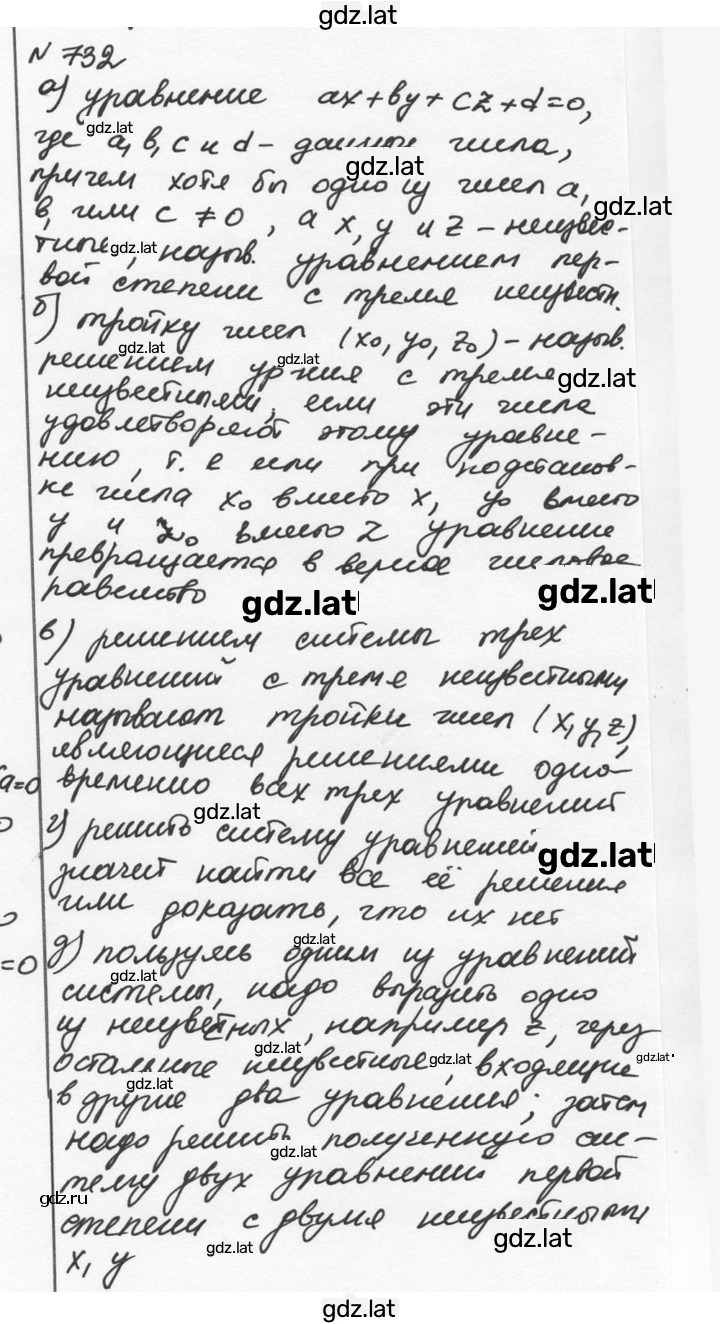 gdz.lat
N 732
а) уравнение ax+by+cz+d=0,
gdz.lat
где a, b, c и d - данные числа,
gdz.lat
причем хотя бы одно из чисел a,
gdz.lat
b, или c ≠ 0, а x, y и z - неизвес-
тные, назыв. уравнением пер-
gdz.lat
вой степени с тремя неизвестн.
б) тройку чисел (x₀, y₀, z₀) - назыв.
gdz.lat
решением ур-ния с тремя
gdz.lat
gdz.lat
неизвестными, если эти числа
удовлетворяют этому уравне-
нию, т.е если при подстанов-
ке числа x₀ вместо x, y₀ вместо
y и z₀ вместо z уравнение
превращается в верное числовое
равенство
gdz.lat
gdz.lat
в) решением системы трех
уравнений с тремя неизвестными
называют тройки чисел (x, y, z),
являющиеся решениями одно-
a=0
временно всех трех уравнений
gdz.lat
г) решить систему уравнений
gdz.lat
значит найти все её решения
или доказать, что их нет
gdz.lat
=0
д) пользуясь одним из уравнений
gdz.lat
системы, надо выразить одно
из неизвестных, например z, через
gdz.lat
остальные неизвестные, входящие
gdz.lat
gdz.lat
в другие два уравнения; затем
gdz.lat
надо решить полученную сис-
gdz.lat
тему двух уравнений первой
gdz.ru
степени с двумя неизвестными
gdz.lat
gdz.lat
x, y
gdz.lat